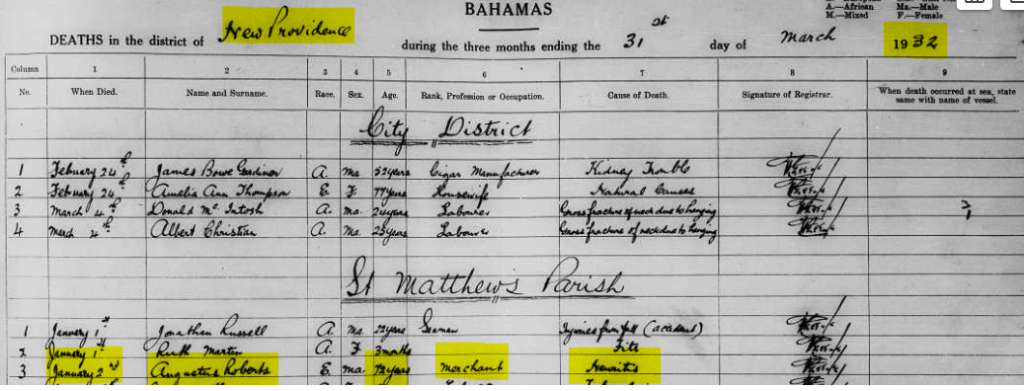 BAHAMAS
A.—African Ma.—Male
M.—Mixed F.—Female
DEATHS in the district of New Providence during the three months ending the 31st day of March 1932
Column 1 2 3 4 5 6 7 8 9
No. When Died. Name and Surname. Race. Sex. Age. Rank, Profession or Occupation. Cause of Death. Signature of Registrar. When death occurred at sea, state same with name of vessel.
City District
1 Febuary 24th James Bowe Gardiner A. Ma 52 years Cigar Manufacturer Kidney Trouble
2 Febuary 24th Amelia Ann Thompson E F 77 years Housewife Natural Causes
3 March 4th Donald Mc Intosh A. Ma 24 years Labourer Gross fracture of neck due to hanging
4 March 4th Albert Christian A. Ma. 25 years Labourer Gross fracture of neck due to hanging
St Matthews Parish
1 January 1st Jonathan Russell A. Ma 22 years Seaman Injuries from fall (accident)
2 January 1st Ruth Martin A. F 3 months Fits
3 January 2nd Augustus Roberts E Ma 72 years Merchant Neuritis